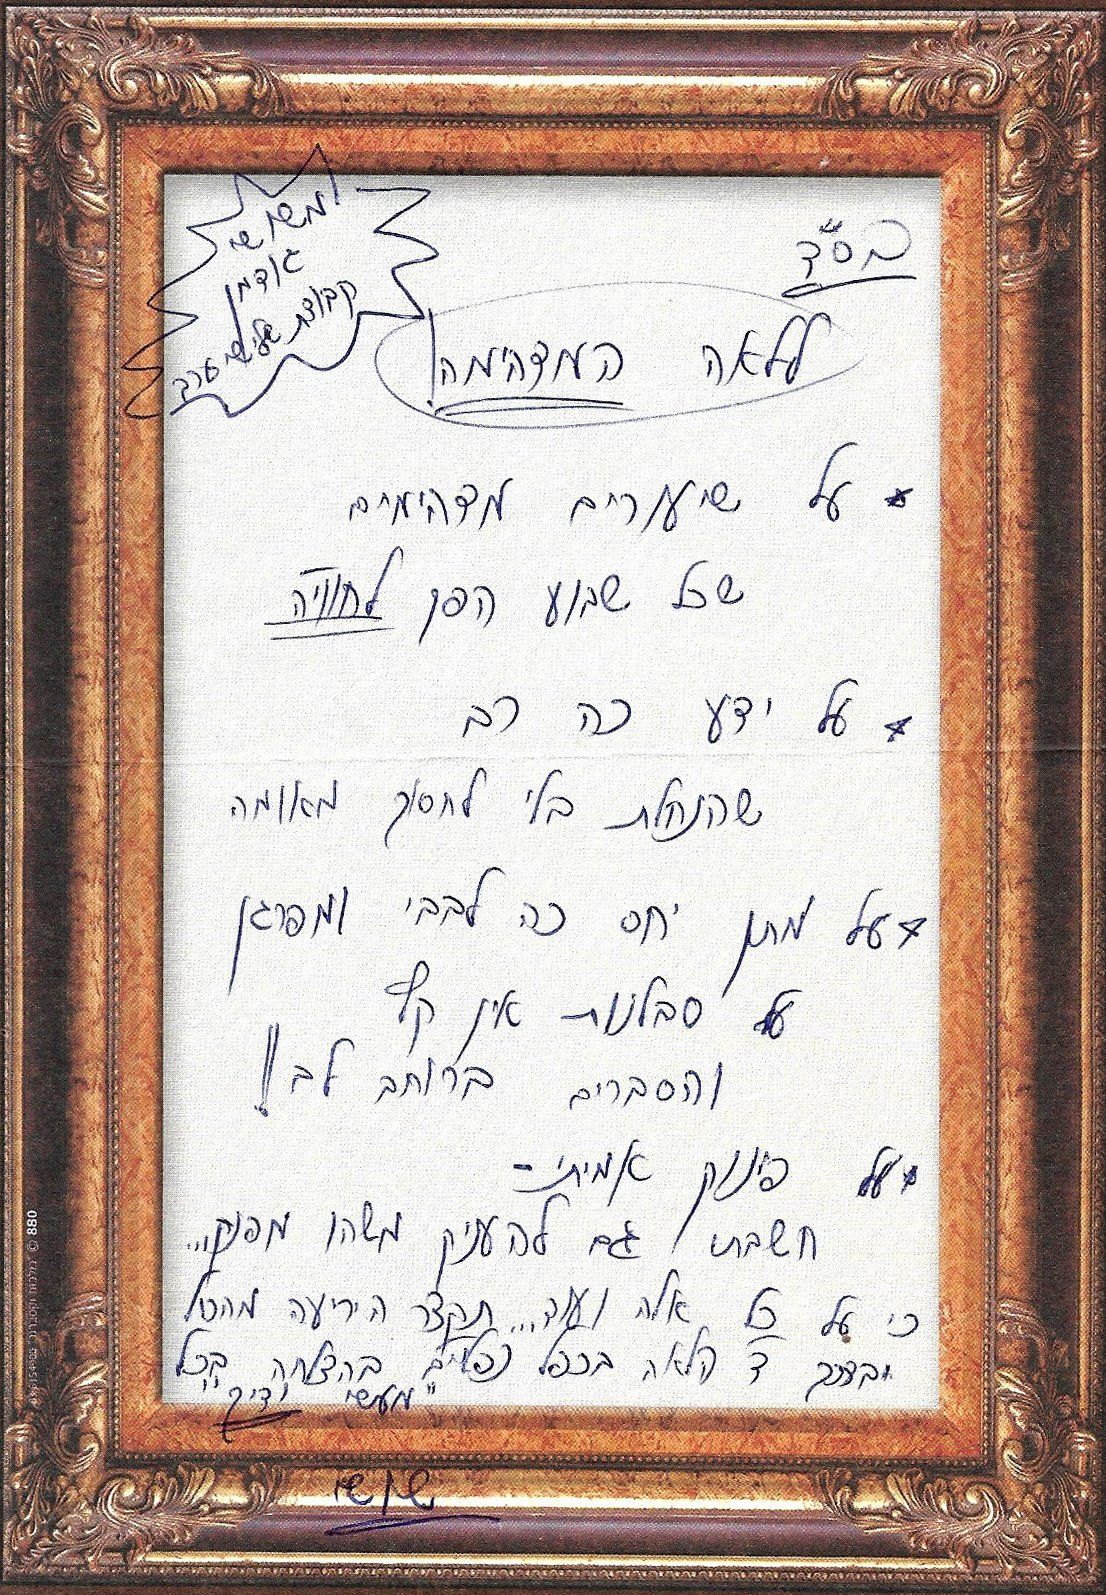 בס"ד
ללאה המדהימה!
משושי
גודמן
קבוצת שלישי ערב
* על שיעורים מדהימים
שכל שבוע הפך לחוויה
* על ידע כה רב
שהנחלת בלי לחסוך מאומה
* על מתן יחס כה לבבי ומפרגן
על סבלנות אין קץ
והסברים ברוחב לב!!
* על פינוק אמיתי -
חשבתי גם להעניק משהו מפנק...
כי על כל אלה ועוד... תקצר היריעה מהכל
יברכך ד' הלאה בכפל כפליים בהצלחה בכל
"מעשי ידיך"
שושי
880 ©